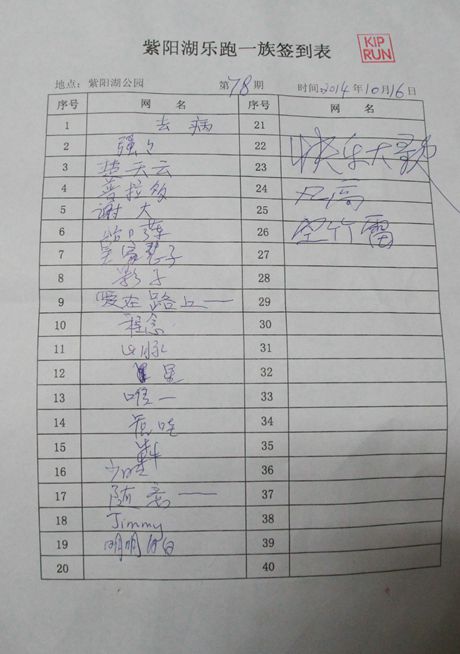 紫阳湖乐跑一族签到表
KIP
RUN
地点：紫阳湖公园 第78期 时间2014年10月16日
序号 网 名 序号 网 名
1 去病 21
2 强 22
3 楚天云 23 快乐大
4 普拉 24
5 谢大 25 高
6 26 空竹雷
7 子 27
8 影子 28
9 爱在路上 29
10 程念 30
11 31
12 32
13 唯一 33
14 34
15 35
16 36
17 随意 37
18 Jimmy 38
19 明明 39
20 40